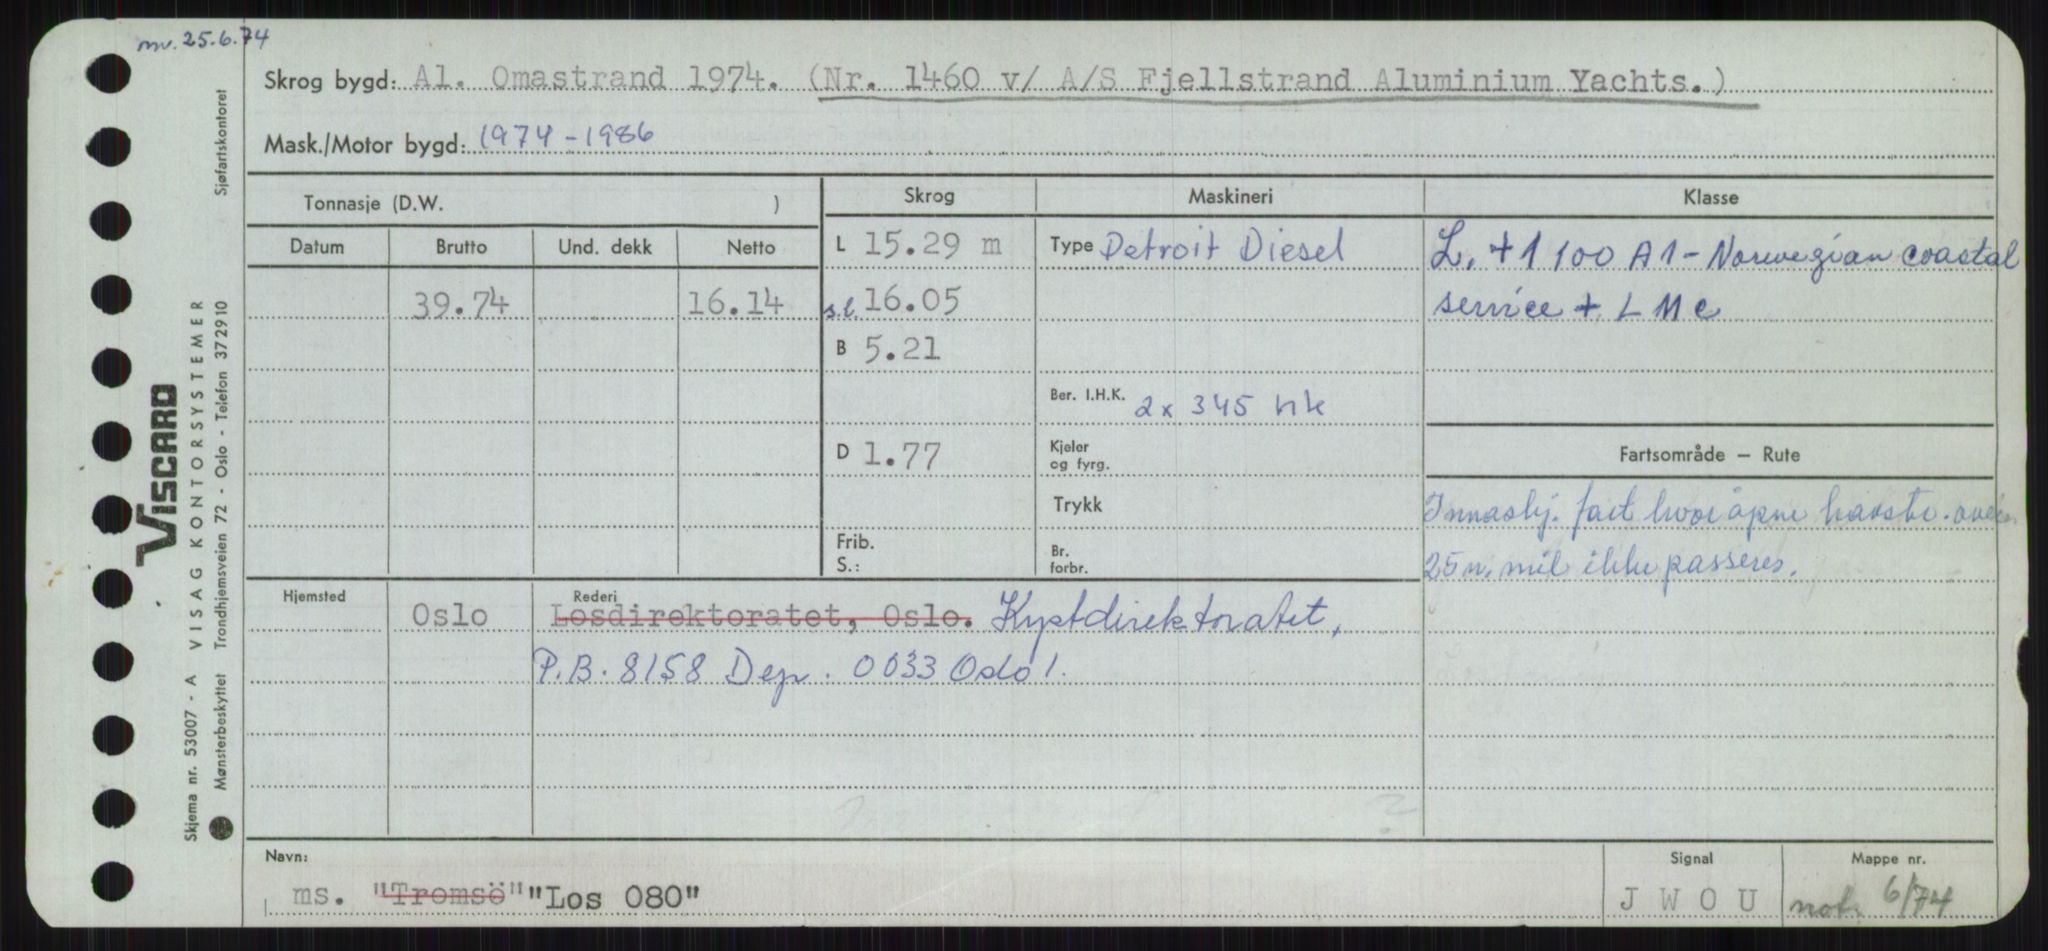 mv. 25.6.74
Skrog bygd: Al. Omastrand 1974. (Nr. 1460 v/ A/S Fjellstrand Aluminium Yachts.)
Mask./Motor bygd: 1974-1986
Tonnasje (D.W. )
Skrog
Maskineri
Klasse
Datum Brutto Und. dekk Netto
L 15.29 m
Type Detroit Diesel
L. +1 100 A1 - Norwegian coastal
39.74 16.14
s.l. 16.05
service + L M C
B 5.21
Ber. I.H.K. 2x 345 hk
D 1.77
Kjeler
og fyrg.
Fartsområde — Rute
Trykk
fart hvor åpne havstr. over
Frib.
S.:
Br.
forbr.
25 n. mil ikke passeres.
Hjemsted
Rederi
Oslo Losdirektoratet, Oslo. Kystdirektoratet,
P.B. 8158 Dep. 0033 Oslo 1.
Navn:
Signal
Mappe nr.
ms. "Tromsö" "Los 080"
J W O U
not. 6/74
VISCARD
VISAG KONTORSYSTEMER
Skjema nr. 53007 - A
Mønsterbeskyttet Trondhjemsveien 72 - Oslo - Telefon 372910 Sjøfartskontoret